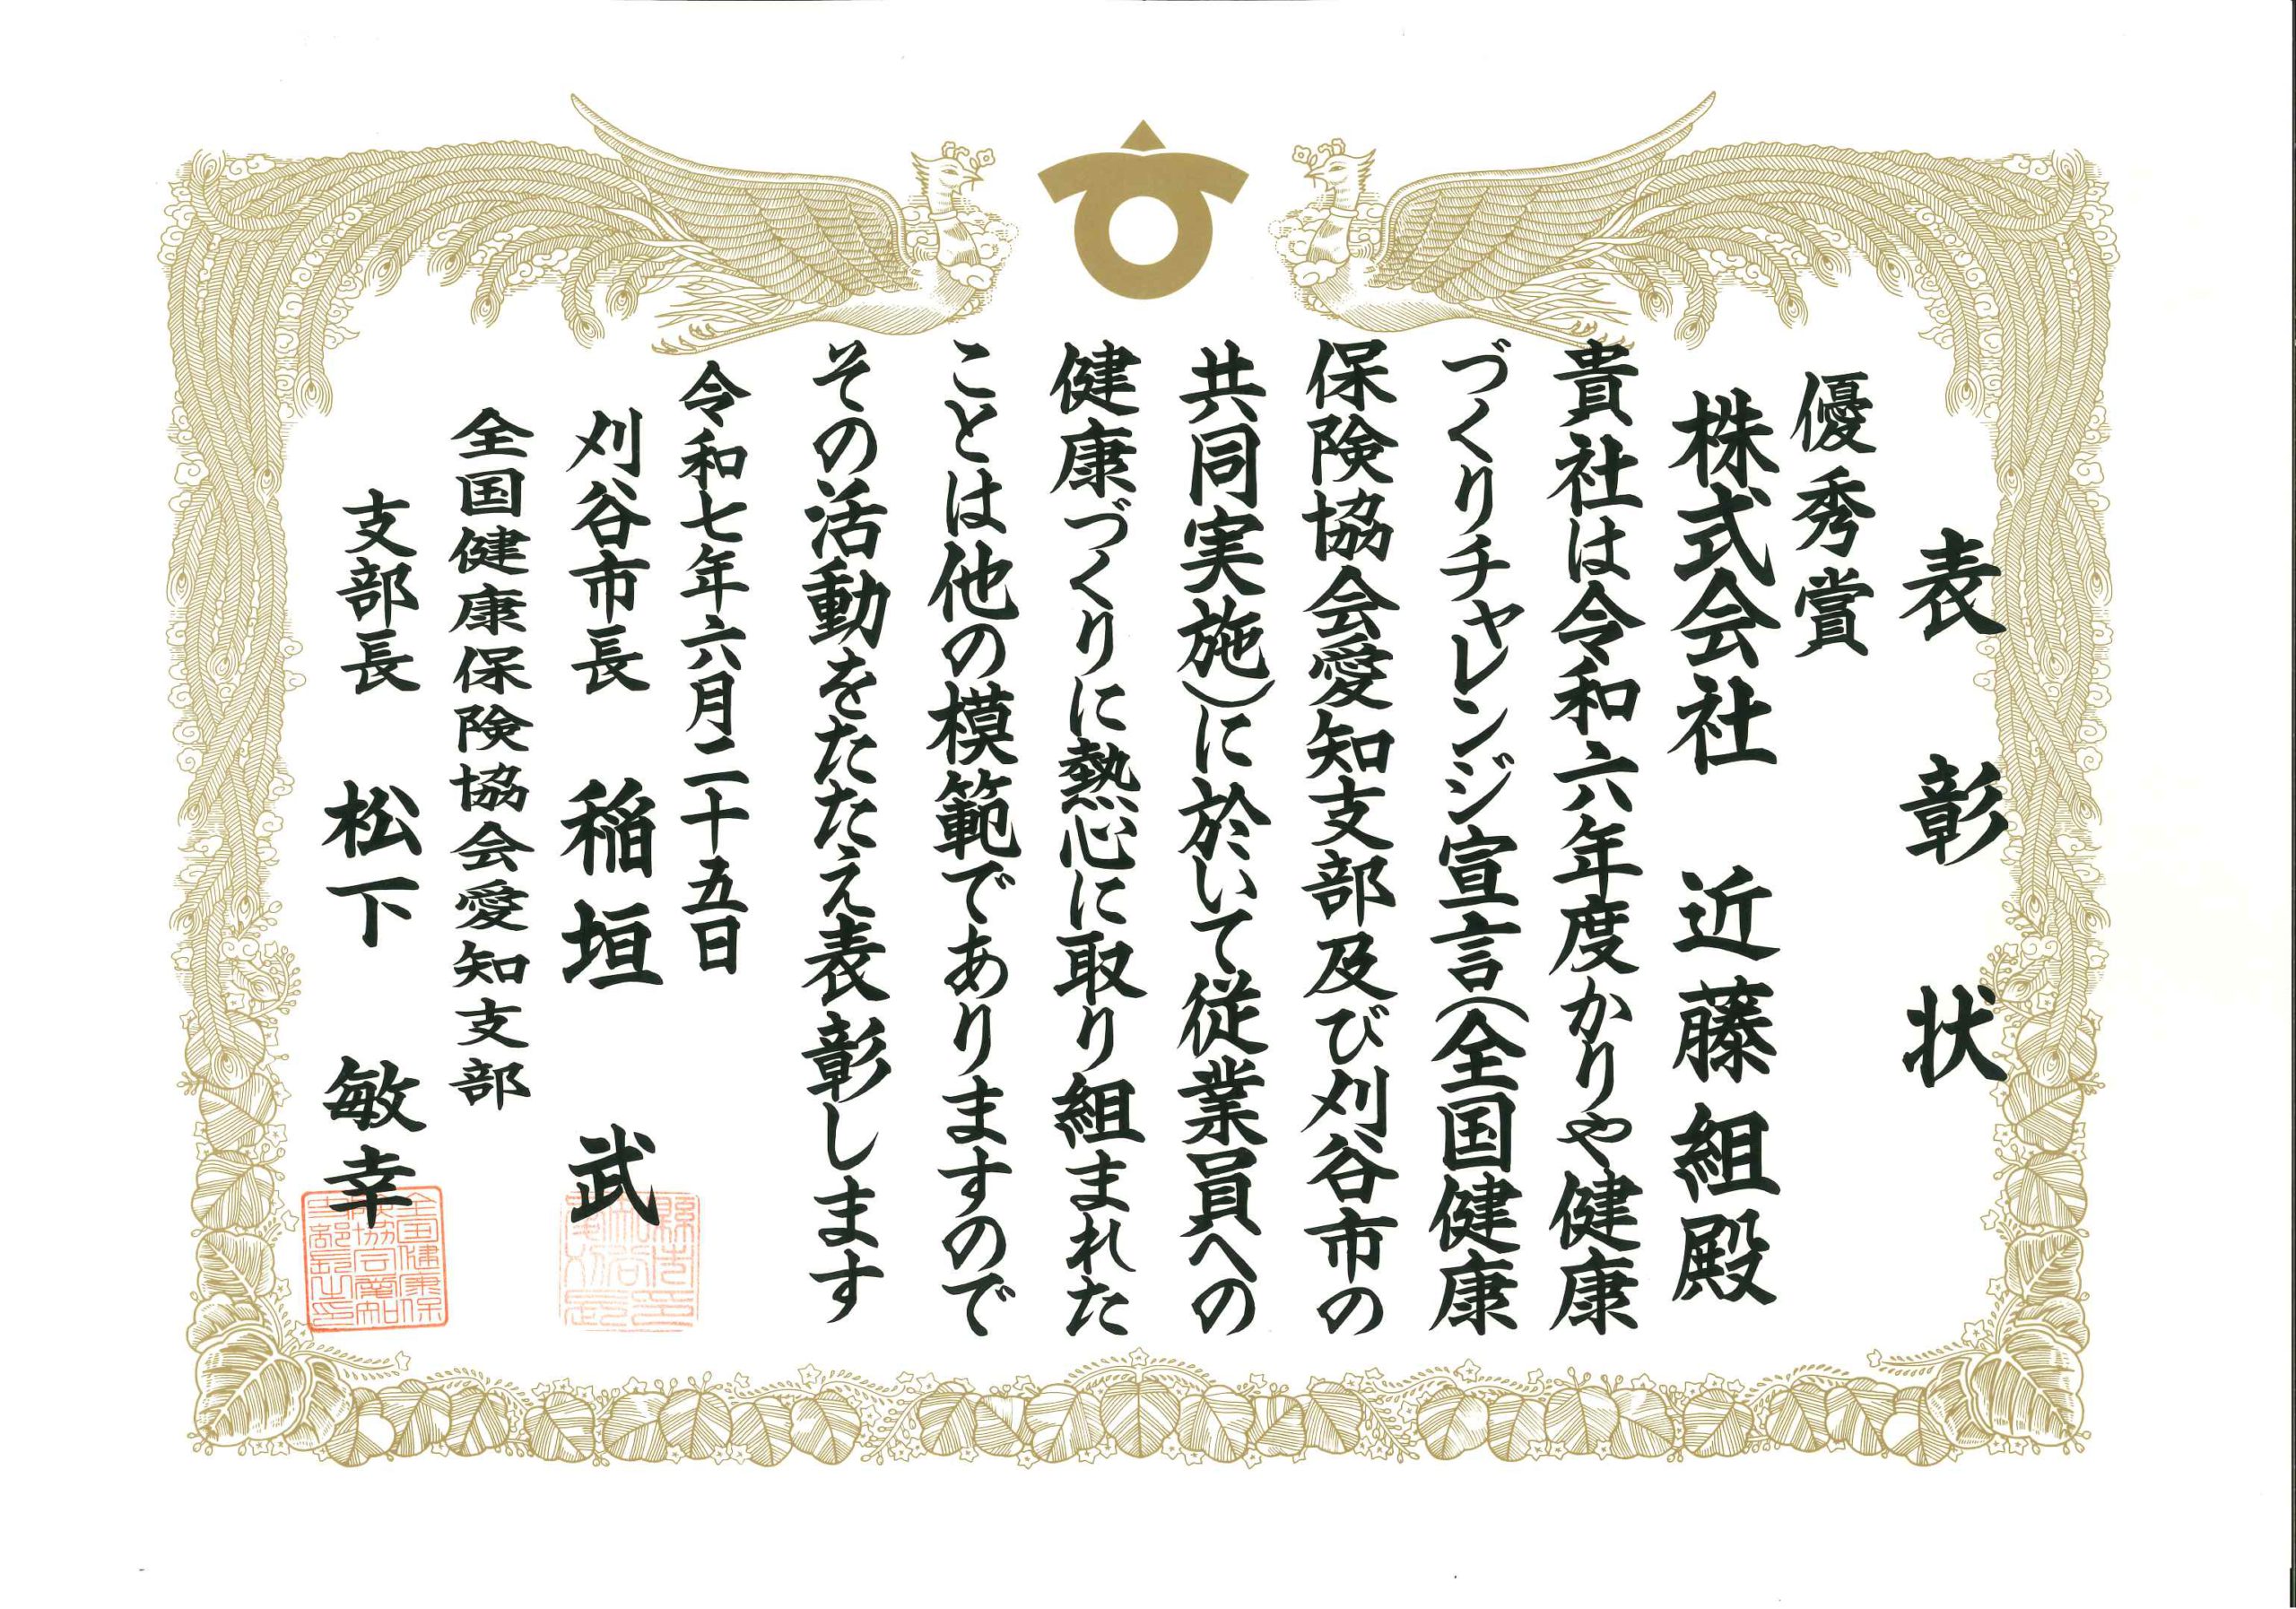 表彰状
優秀賞
株式会社 近藤組殿
貴社は令和六年度かりや健康
づくりチャレンジ宣言(全国健康
保険協会愛知支部及び刈谷市の
共同実施)に於いて従業員への
健康づくりに熱心に取り組まれた
ことは他の模範でありますので
その活動をたたえ表彰します
令和七年六月二十五日
刈谷市長 稲垣 武
全国健康保険協会愛知支部
支部長 松下 敏幸
全国健康保
険協会愛知
支部長之印